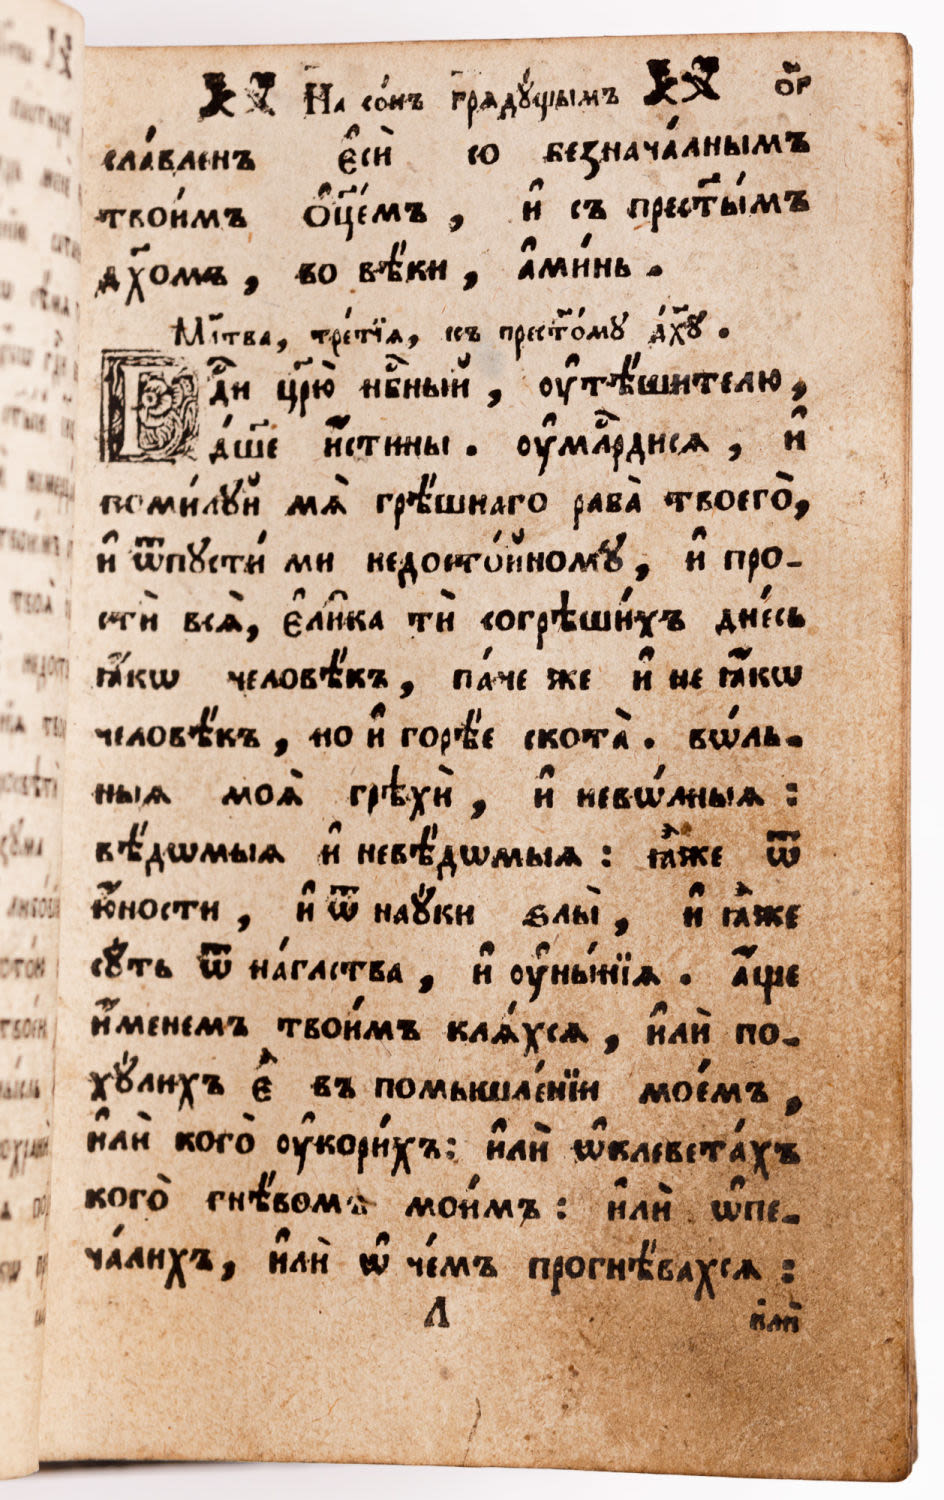 На со́нъ грѧдꙋ́щымъ ог҃
сла́вленъ є҆сѝ со безнача́лнымъ
твои́мъ ѻ҆ц҃е́мъ, и҆ съ прест҃ы́мъ
дх҃омъ, во вѣ́ки, а҆ми́нь.
Мл҃тва, тре́тїѧ, къ прест҃о́мꙋ дх҃ꙋ.
Гдⷭ҇и цр҃ю̀ нбⷭ҇ный, ᲂу҆тѣ́шителю,
дш҃е и҆́стины. ᲂу҆млⷭ҇рдисѧ, и҆
поми́лꙋй мѧ̀ грѣ́шнаго раба̀ твоего̀,
и҆ ѿпꙋсти́ ми недосто́йномꙋ, и҆ про-
стѝ всѧ̀, є҆ли̑ка тѝ согрѣши́хъ дне́сь
ꙗ҆́кѡ человѣ́къ, па́че же и҆ не ꙗ҆́кѡ
человѣ́къ, но и҆ горѣ́е скота̀. вѡ́ль-
ныѧ моѧ̀ грѣхѝ, и҆ невѡ́лныѧ:
вѣ́дѡмыѧ и҆ невѣ́дѡмыѧ: ꙗ҆̀же ѿ
ю҆́ности, и҆ ѿ наꙋ́ки ѕлы̀, и҆ ꙗ҆̀же
сꙋ́ть ѿ на́глства, и҆ ᲂу҆ны́нїѧ. а҆́ще
и҆́менемъ твои́мъ клѧ́хсѧ, и҆лѝ по-
хꙋ́лихъ є҆̀ въ помышле́нїи мое́мъ,
и҆лѝ кого̀ ᲂу҆кори́хъ: и҆лѝ ѡ҆клевета́хъ
кого̀ гнѣ́вомъ мои́мъ: и҆лѝ ѡ҆пе-
ча́лихъ, и҆лѝ ѡ҆ че́мъ прогнѣ́вахсѧ:
Л и҆лѝ